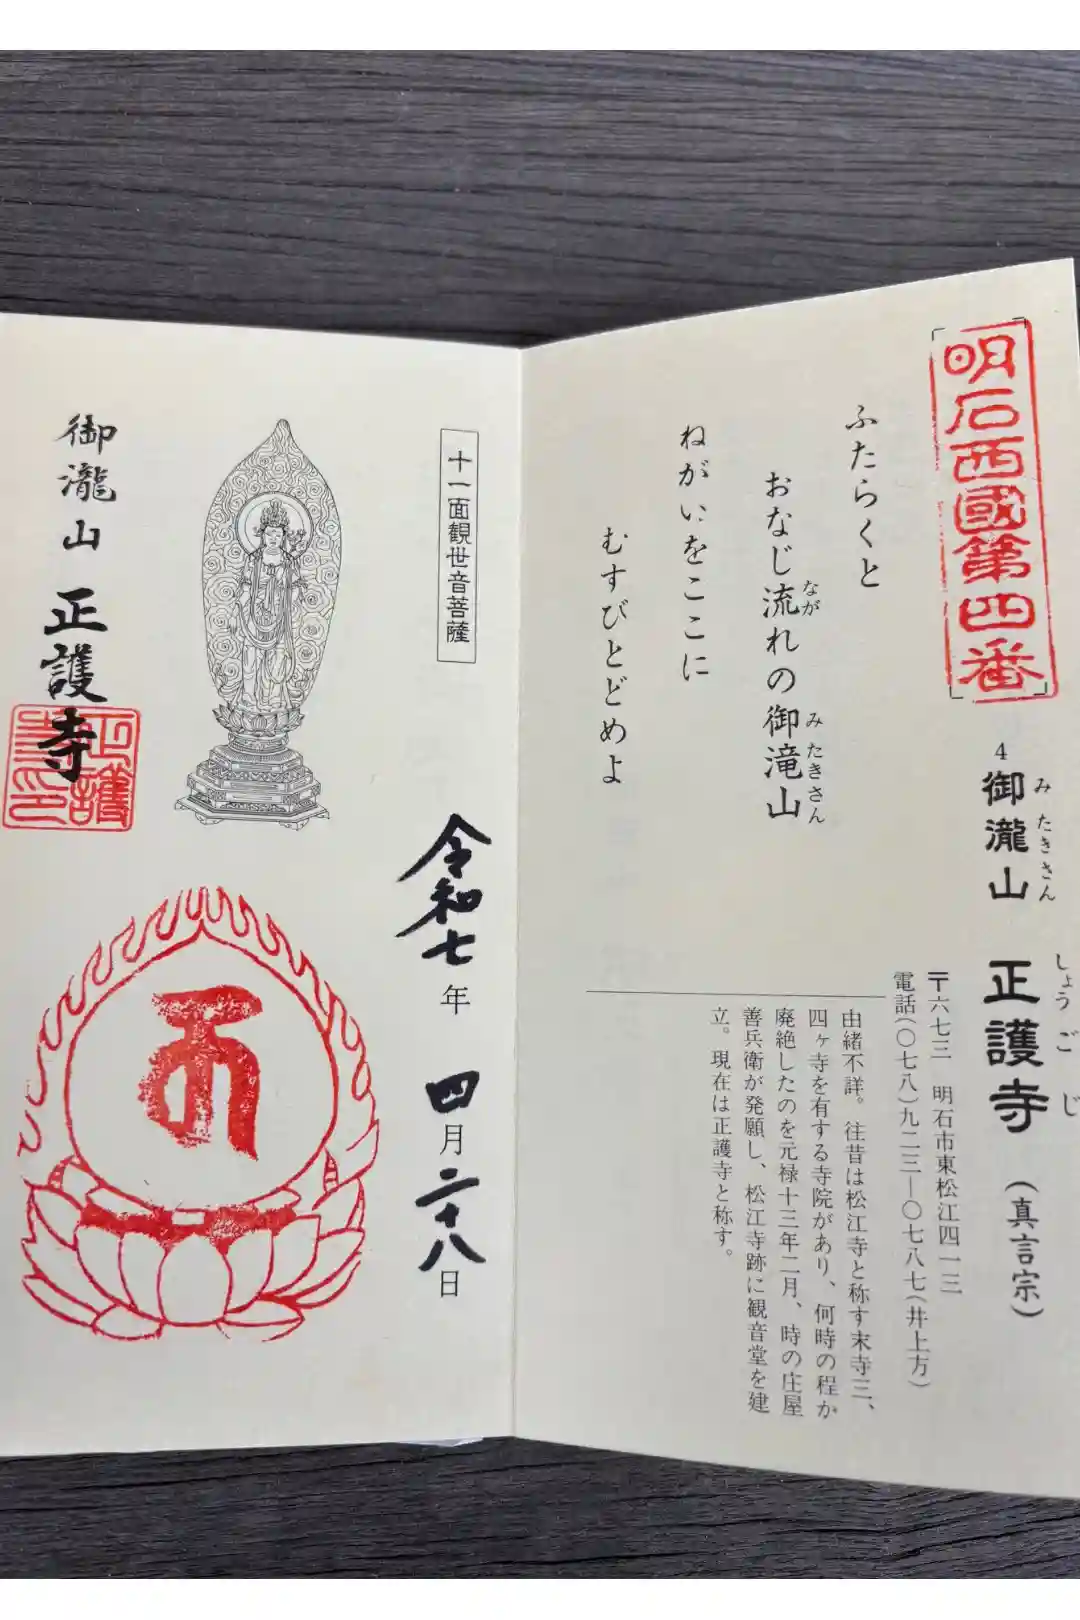 明石西國第四番
4 御瀧山 正護寺(真言宗)
みたきさん しょうごじ
〒六七三 明石市東松江四一三
電話(〇七八)九二三―〇七八七(井上方)
ふたらくと
おなじ流れの御滝山
なが みたきさん
ねがいをここに
むすびとどめよ
由緒不詳。往昔は松江寺と称す末寺三、
四ヶ寺を有する寺院があり、何時の程か
廃絶したのを元禄十三年二月、時の庄屋
善兵衛が発願し、松江寺跡に観音堂を建
立。現在は正護寺と称す。
十一面観世音菩薩
令和七年 四月二十八日
御瀧山 正護寺
正護寺印